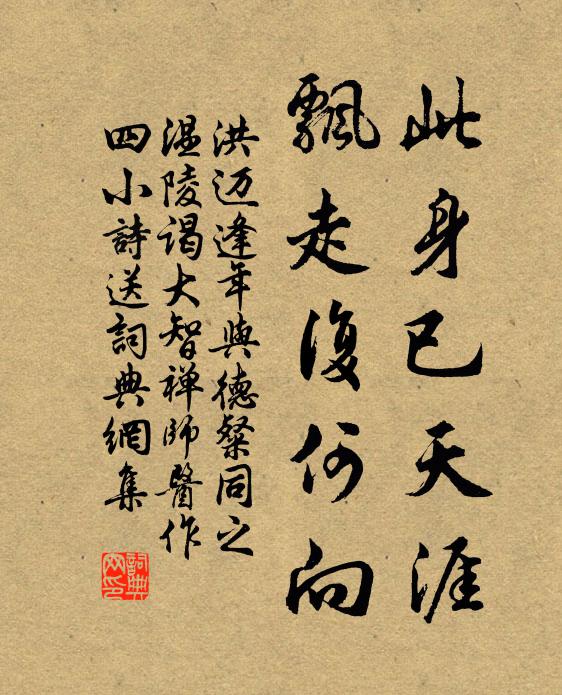 此身已天涯
飄走復何向
洪迈逢年與德粲同之
温陵谒大智禅师醫作
四小詩送詞典網集
詞典
网印